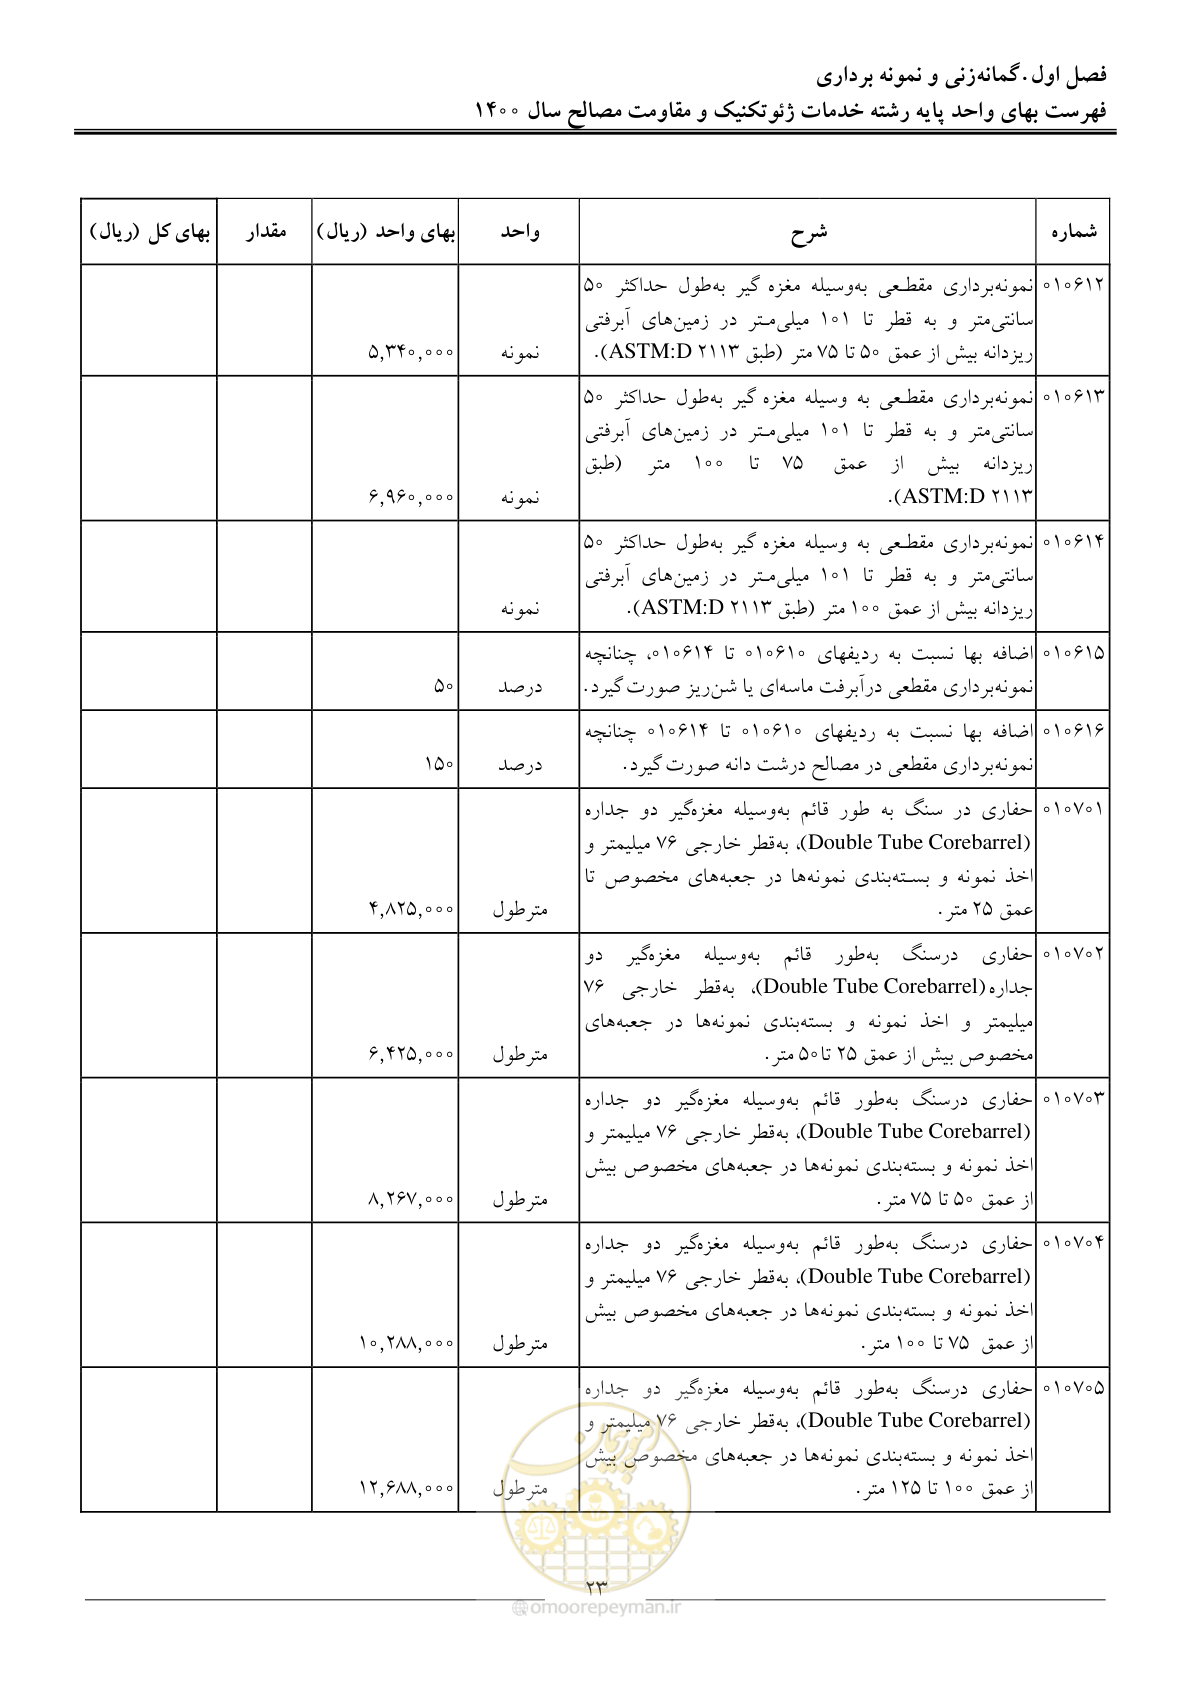 فصل اول.گمانه‌زنی و نمونه برداری
فهرست بهای واحد پایه رشته خدمات ژئوتکنیک و مقاومت مصالح سال ۱۴۰۰
شماره شرح واحد بهای واحد (ریال) مقدار بهای کل (ریال)
۰۱۰۶۱۲ نمونه‌برداری مقطعی به‌وسیله مغزه گیر به‌طول حداکثر ۵۰
سانتی‌متر و به قطر تا ۱۰۱ میلی‌متر در زمین‌های آبرفتی
ریزدانه بیش از عمق ۵۰ تا ۷۵ متر (طبق ASTM:D ۲۱۱۳). نمونه ۵,۳۴۰,۰۰۰
۰۱۰۶۱۳ نمونه‌برداری مقطعی به وسیله مغزه گیر به‌طول حداکثر ۵۰
سانتی‌متر و به قطر تا ۱۰۱ میلی‌متر در زمین‌های آبرفتی
ریزدانه بیش از عمق ۷۵ تا ۱۰۰ متر (طبق
ASTM:D ۲۱۱۳). نمونه ۶,۹۶۰,۰۰۰
۰۱۰۶۱۴ نمونه‌برداری مقطعی به وسیله مغزه گیر به‌طول حداکثر ۵۰
سانتی‌متر و به قطر تا ۱۰۱ میلی‌متر در زمین‌های آبرفتی
ریزدانه بیش از عمق ۱۰۰ متر (طبق ASTM:D ۲۱۱۳). نمونه
۰۱۰۶۱۵ اضافه بها نسبت به ردیفهای ۰۱۰۶۱۰ تا ۰۱۰۶۱۴، چنانچه
نمونه‌برداری مقطعی درآبرفت ماسه‌ای یا شن‌ریز صورت گیرد. درصد ۵۰
۰۱۰۶۱۶ اضافه بها نسبت به ردیفهای ۰۱۰۶۱۰ تا ۰۱۰۶۱۴ چنانچه
نمونه‌برداری مقطعی در مصالح درشت دانه صورت گیرد. درصد ۱۵۰
۰۱۰۷۰۱ حفاری در سنگ به طور قائم به‌وسیله مغزه‌گیر دو جداره
(Double Tube Corebarrel)، به‌قطر خارجی ۷۶ میلیمتر و
اخذ نمونه و بسته‌بندی نمونه‌ها در جعبه‌های مخصوص تا
عمق ۲۵ متر. مترطول ۴,۸۲۵,۰۰۰
۰۱۰۷۰۲ حفاری درسنگ به‌طور قائم به‌وسیله مغزه‌گیر دو
جداره(Double Tube Corebarrel)، به‌قطر خارجی ۷۶
میلیمتر و اخذ نمونه و بسته‌بندی نمونه‌ها در جعبه‌های
مخصوص بیش از عمق ۲۵ تا۵۰ متر. مترطول ۶,۴۲۵,۰۰۰
۰۱۰۷۰۳ حفاری درسنگ به‌طور قائم به‌وسیله مغزه‌گیر دو جداره
(Double Tube Corebarrel)، به‌قطر خارجی ۷۶ میلیمتر و
اخذ نمونه و بسته‌بندی نمونه‌ها در جعبه‌های مخصوص بیش
از عمق ۵۰ تا ۷۵ متر. مترطول ۸,۲۶۷,۰۰۰
۰۱۰۷۰۴ حفاری درسنگ به‌طور قائم به‌وسیله مغزه‌گیر دو جداره
(Double Tube Corebarrel)، به‌قطر خارجی ۷۶ میلیمتر و
اخذ نمونه و بسته‌بندی نمونه‌ها در جعبه‌های مخصوص بیش
از عمق ۷۵ تا ۱۰۰ متر. مترطول ۱۰,۲۸۸,۰۰۰
۰۱۰۷۰۵ حفاری درسنگ به‌طور قائم به‌وسیله مغزه‌گیر دو جداره
(Double Tube Corebarrel)، به‌قطر خارجی ۷۶ میلیمتر و
اخذ نمونه و بسته‌بندی نمونه‌ها در جعبه‌های مخصوص بیش
از عمق ۱۰۰ تا ۱۲۵ متر. مترطول ۱۲,۶۸۸,۰۰۰
امورپیمان
۲۳
omoorepeyman.ir